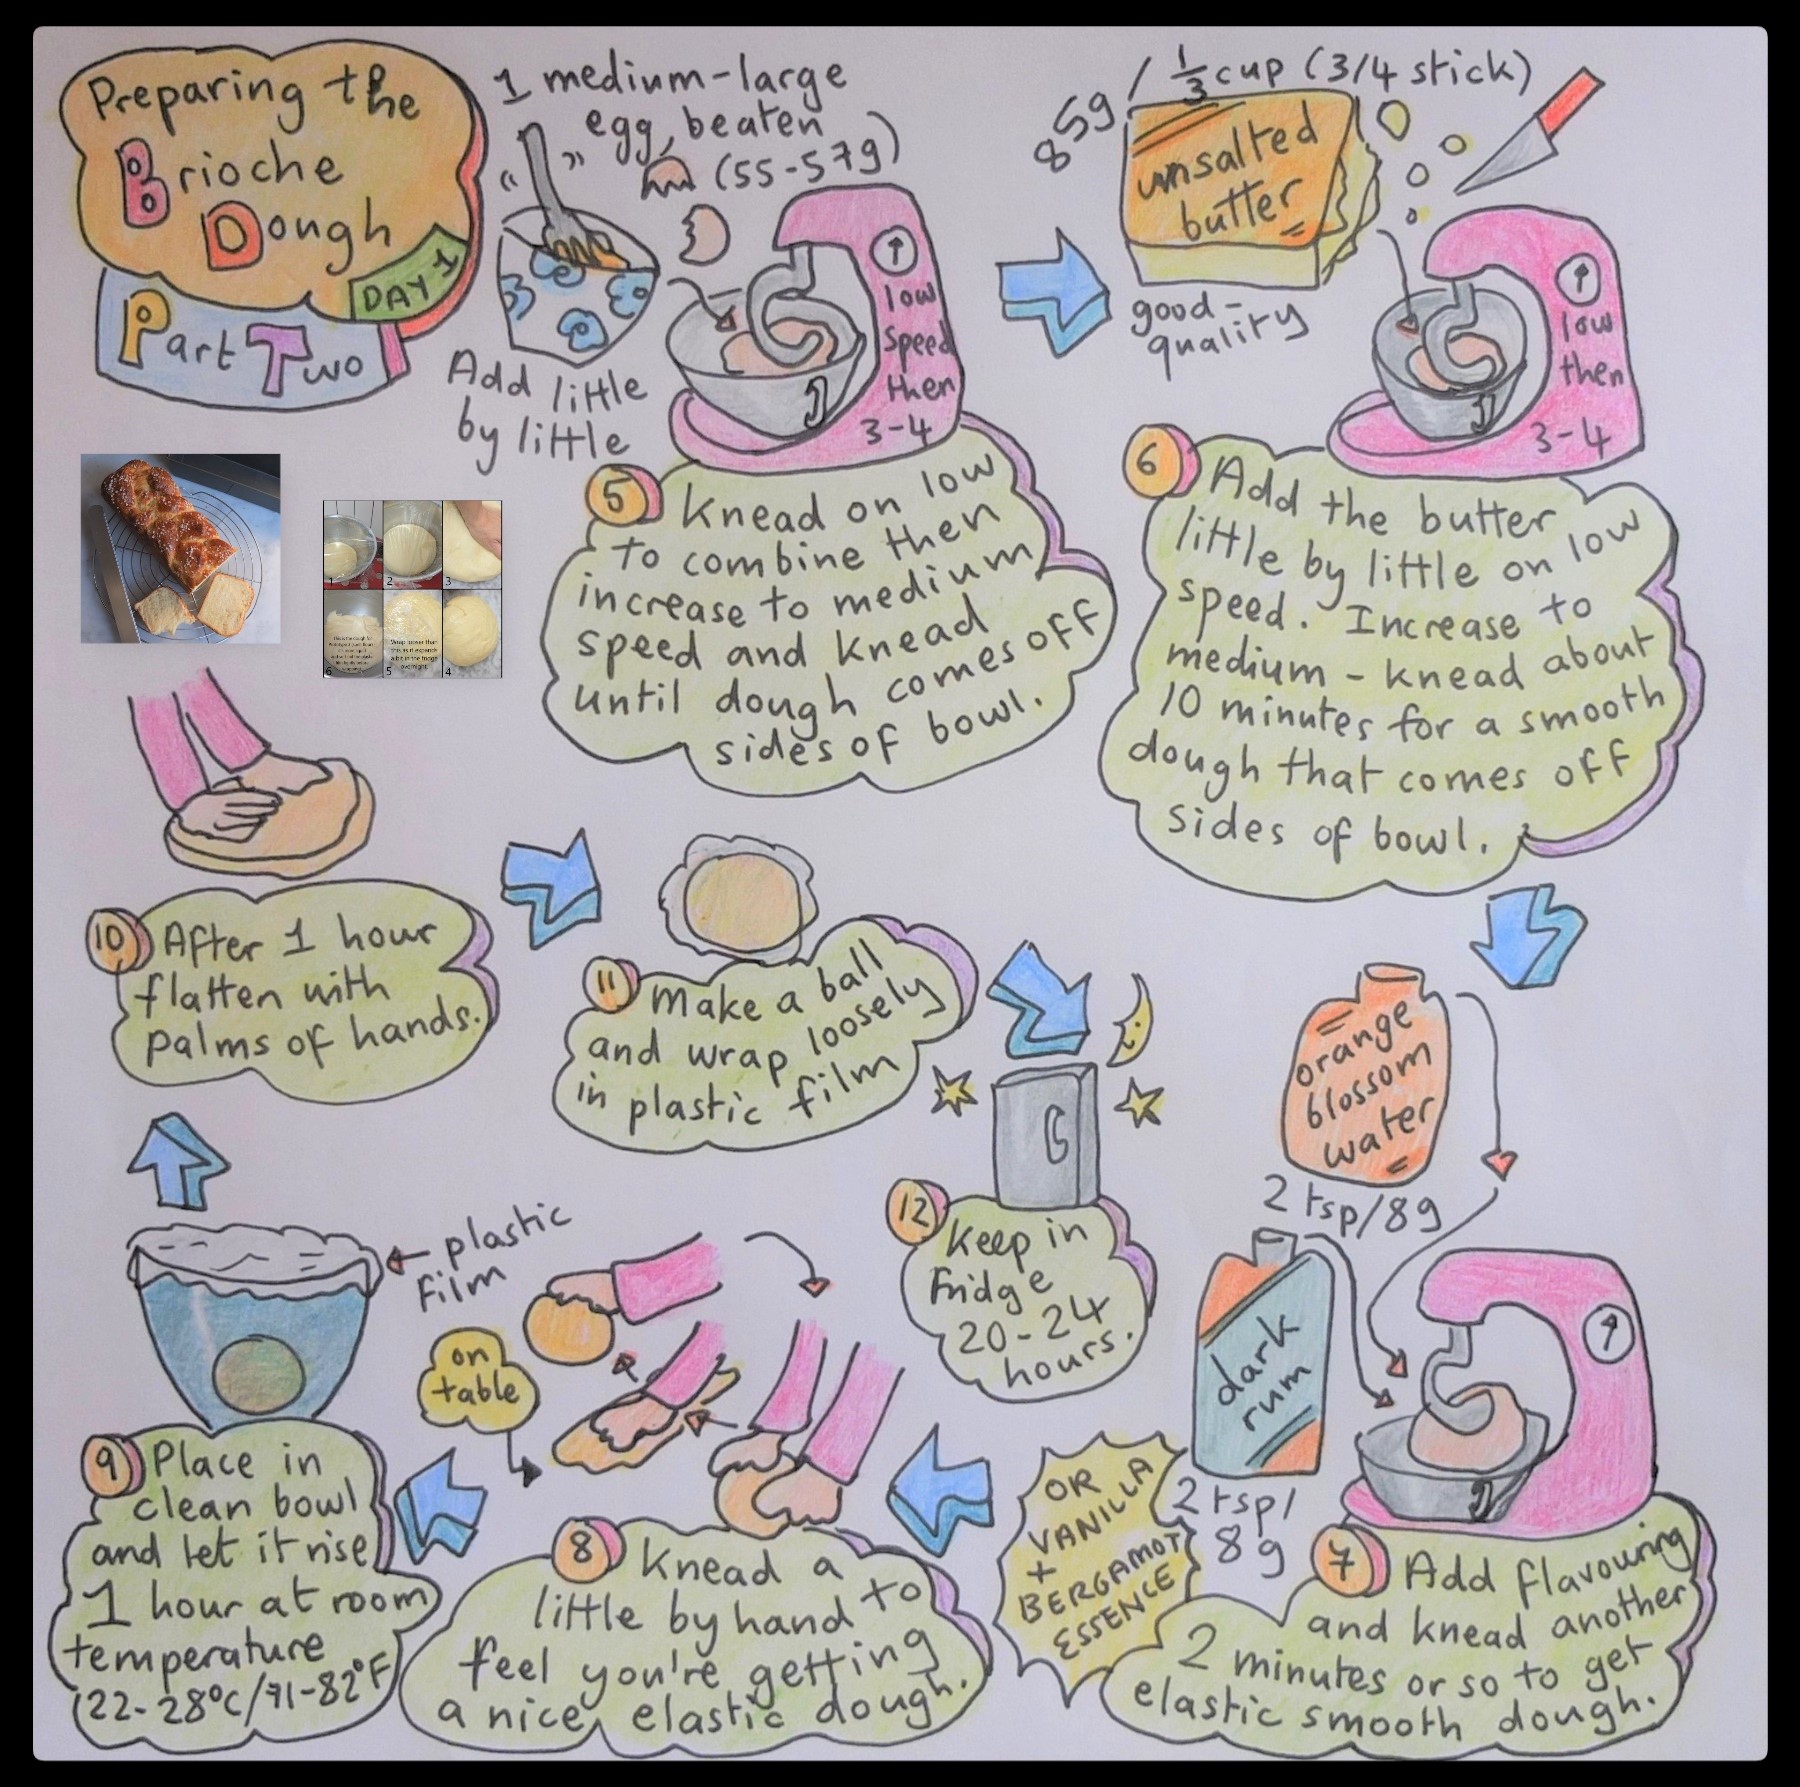 Preparing the
Brioche
Dough
DAY 1
Part Two
1 medium-large
egg, beaten
(55-57g)
Add little
by little
low
speed
then
3-4
5 Knead on low
to combine then
increase to medium
speed and knead
until dough comes off
sides of bowl.
85g / 1/3 cup (3/4 stick)
unsalted
butter
good-
quality
low
then
3-4
6 Add the butter
little by little on low
speed. Increase to
medium - knead about
10 minutes for a smooth
dough that comes off
sides of bowl.
orange
blossom
water
2 tsp/8g
dark
rum
2 tsp/
8g
OR
VANILLA
+
BERGAMOT
ESSENCE
7 Add flavouring
and knead another
2 minutes or so to get
elastic smooth dough.
8 Knead a
little by hand to
feel you're getting
a nice, elastic dough.
on
table
plastic
film
9 Place in
clean bowl
and let it rise
1 hour at room
temperature
(22-28°C/71-82°F
10 After 1 hour
flatten with
palms of hands.
11 Make a ball
and wrap loosely
in plastic film
12 Keep in
fridge
20-24
hours.
1
2
3
6
5
4
Wrap looser than
this as it expands
a bit in the fridge
overnight